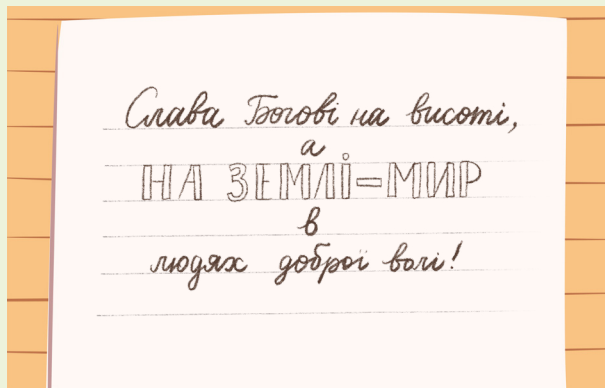 Слава Богові на висоті,
а
НА ЗЕМЛІ=МИР
в
людях доброї волі!